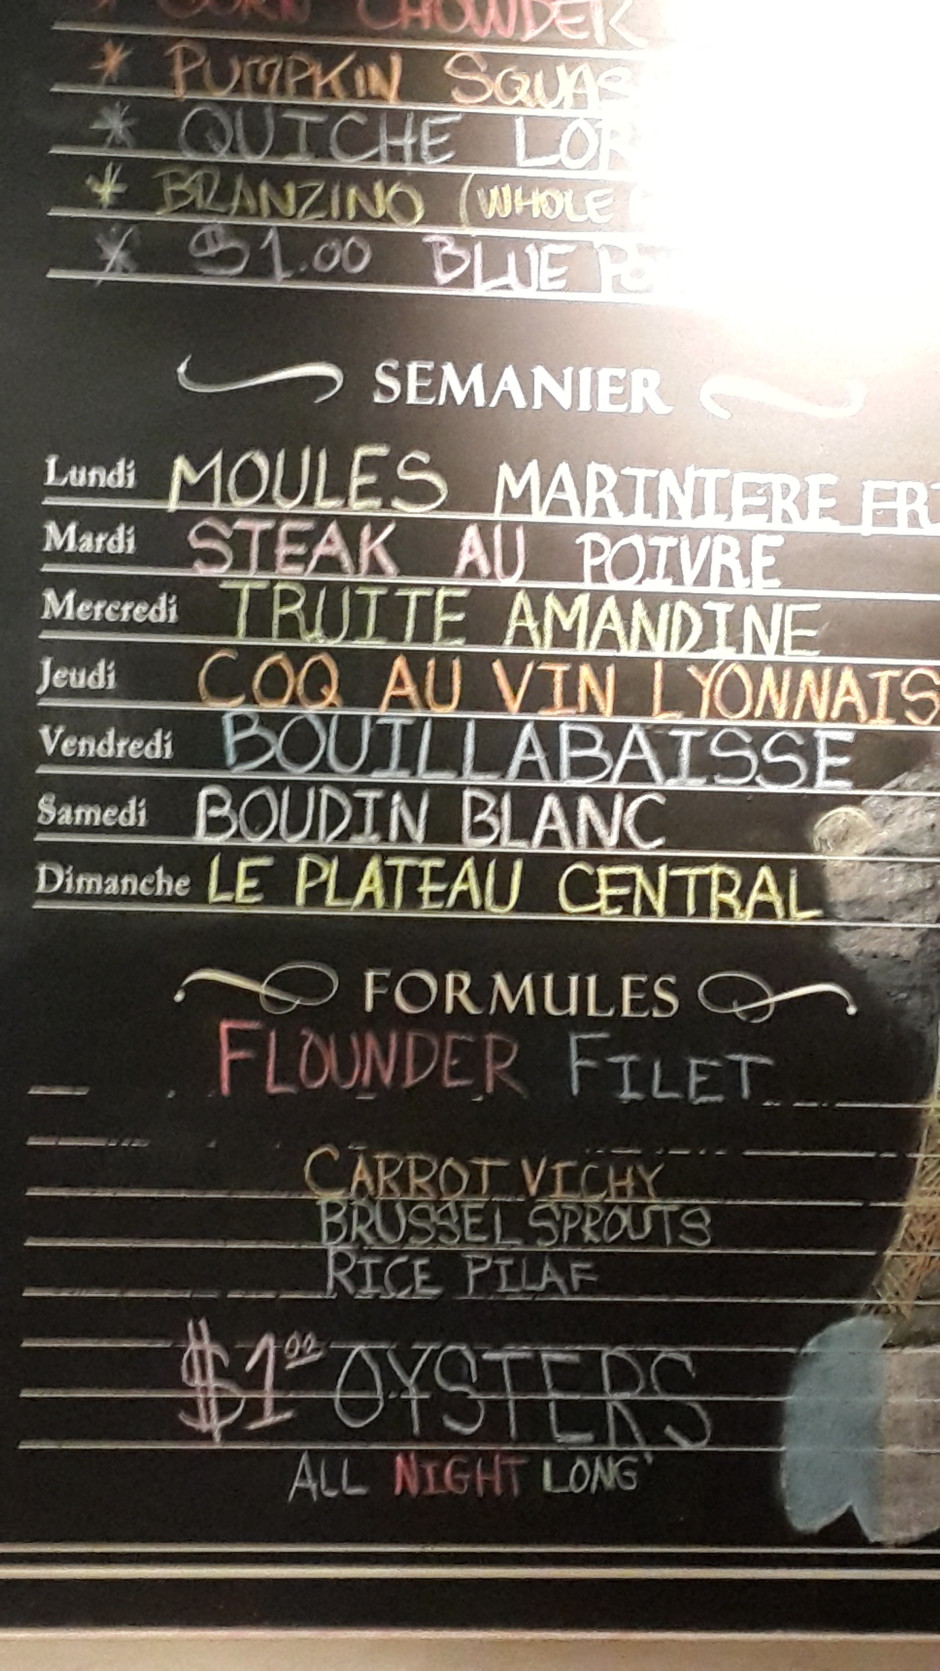 * CORN CHOWDER
* PUMPKIN SQUAS
* QUICHE LOR
* BRANZINO (WHOLE
* $1.00 BLUE PO
SEMANIER
Lundi MOULES MARINIERE FRI
Mardi STEAK AU POIVRE
Mercredi TRUITE AMANDINE
Jeudi COQ AU VIN LYONNAIS
Vendredi BOUILLABAISSE
Samedi BOUDIN BLANC
Dimanche LE PLATEAU CENTRAL
FORMULES
FLOUNDER FILET
CARROT VICHY
BRUSSEL SPROUTS
RICE PILAF
$1.00 OYSTERS
ALL NIGHT LONG'